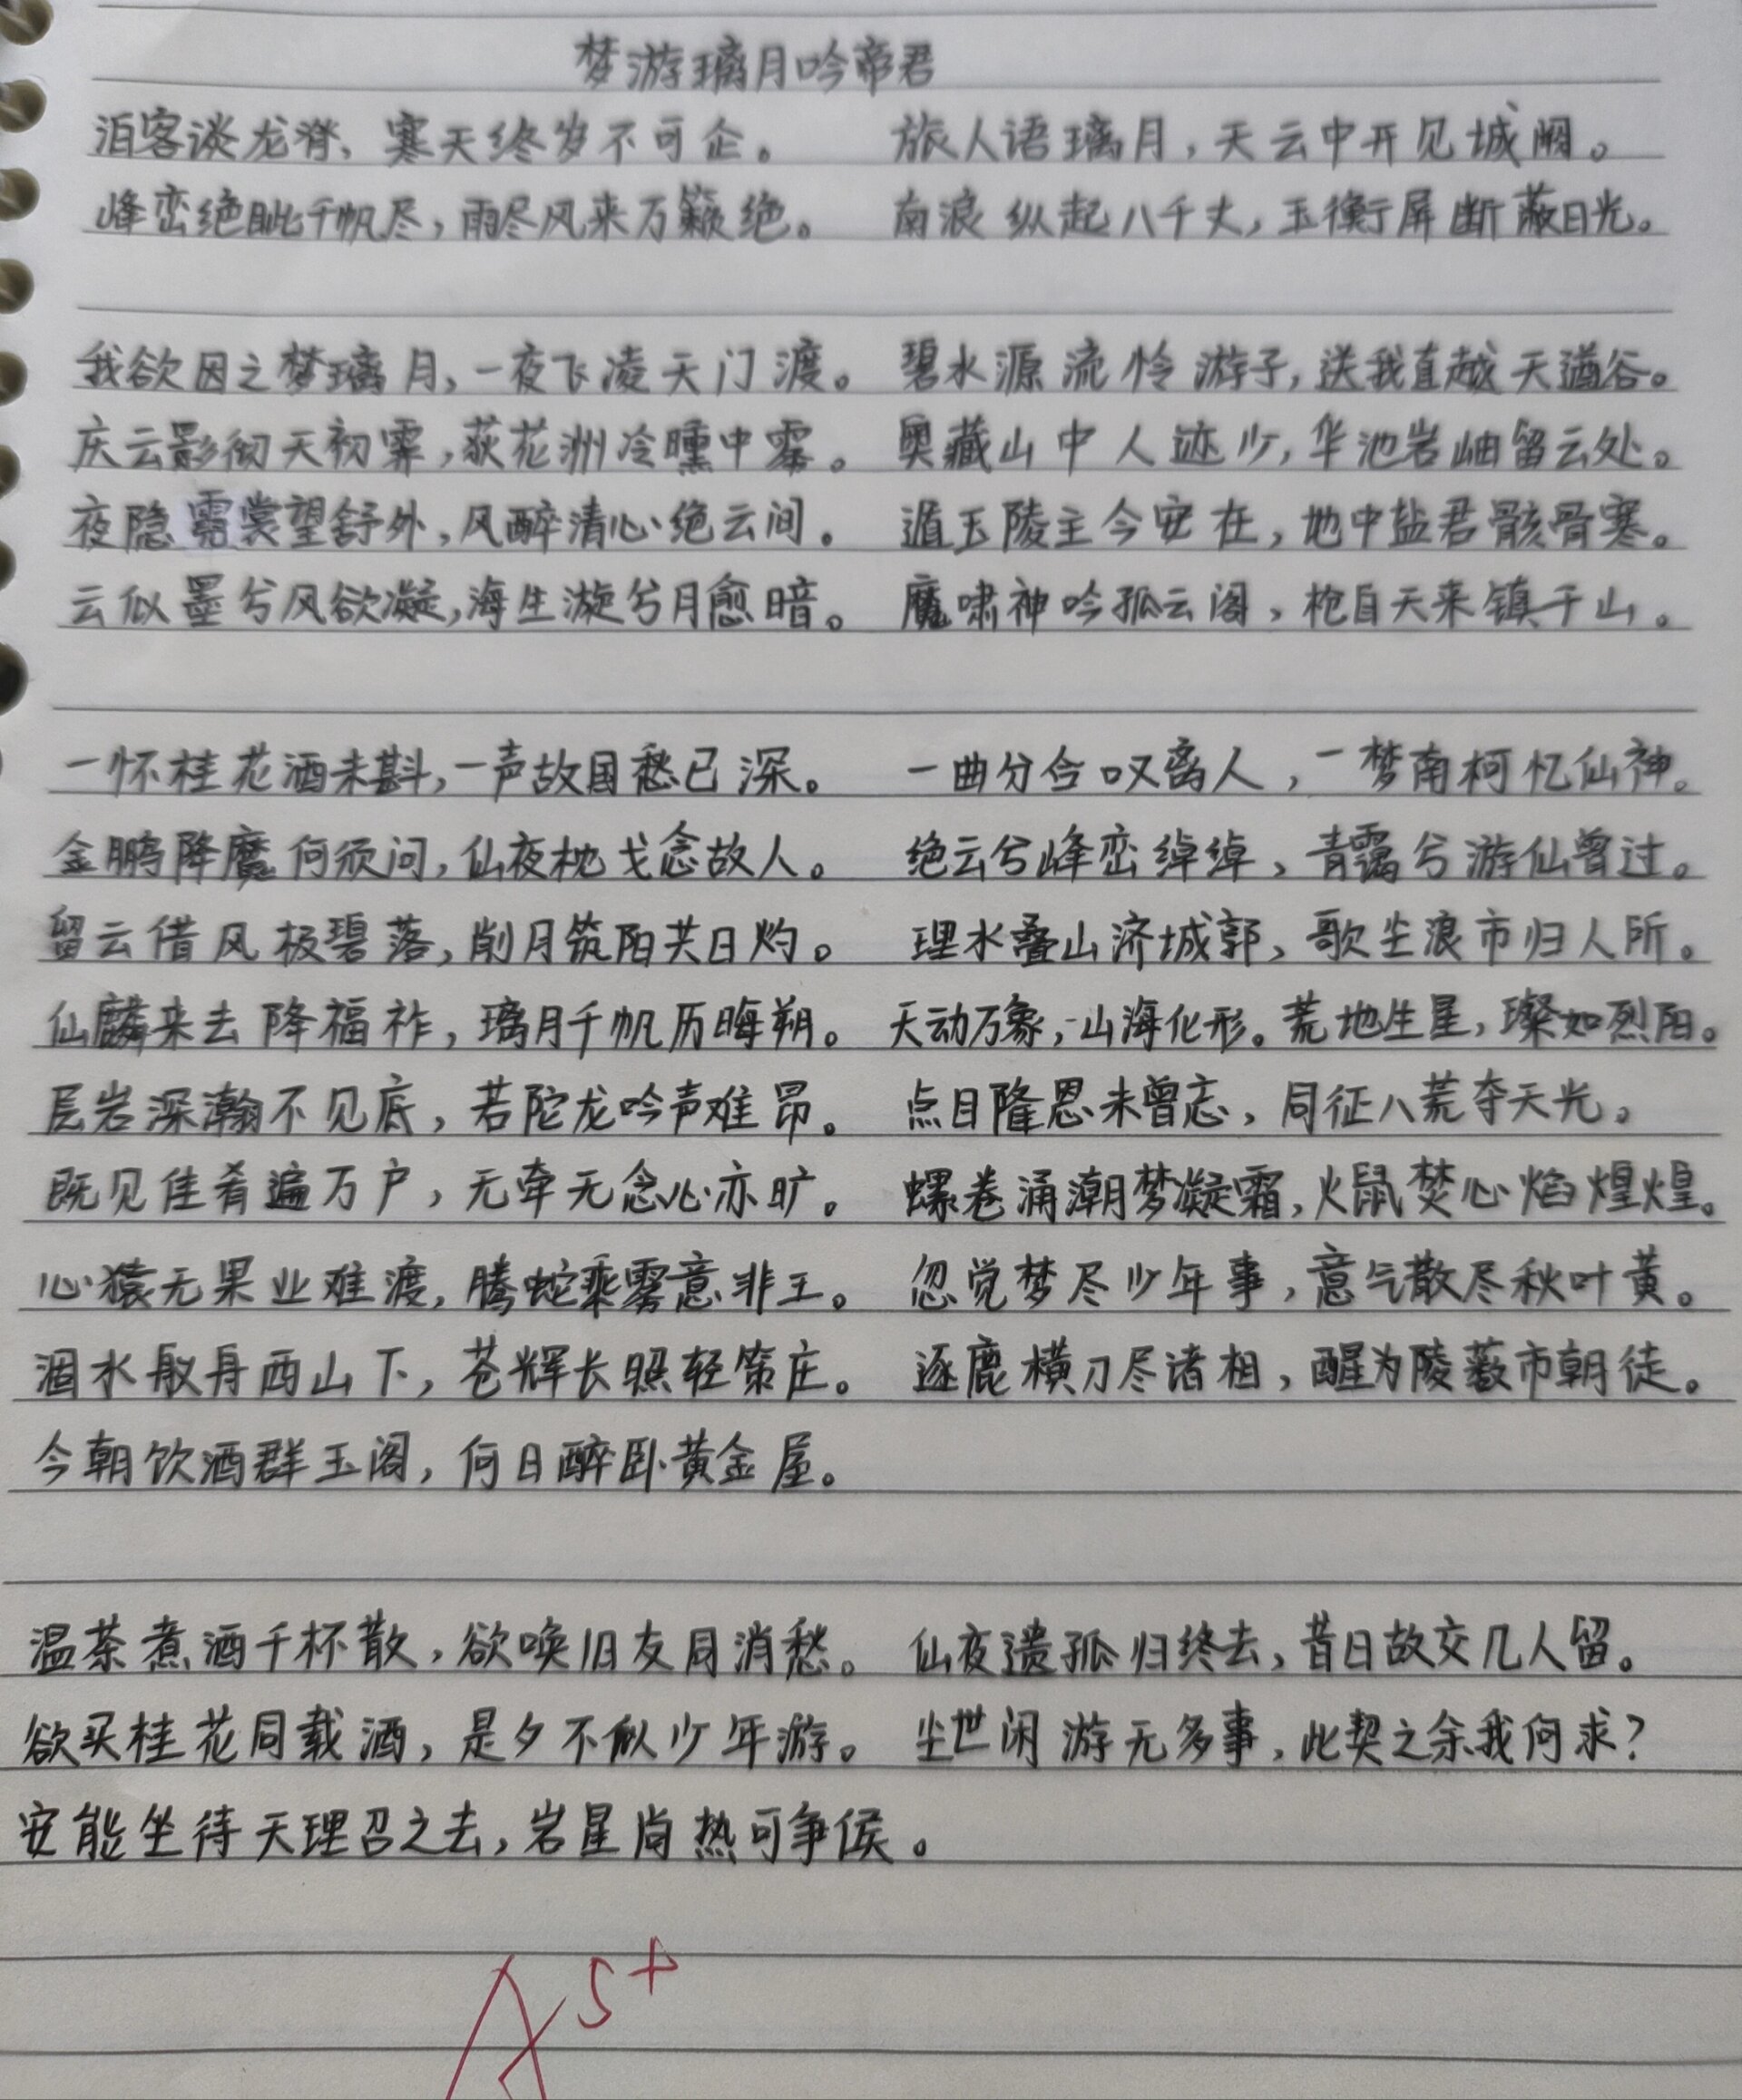 梦游璃月吟帝君
泊客谈龙脊、寒天终岁不可企。 旅人语璃月，天云中开见城阙。
峰峦绝眦千帆尽，雨尽风来万籁绝。 南浪纵起八千丈，玉衡屏断蔽日光。
我欲因之梦璃月，一夜飞凌天门渡。 碧水源流怜游子，送我直越天遒谷。
庆云影彻天初霁，荻花洲冷曛中雾。 奥藏山中人迹少，华池岩岫留云处。
夜隐霓裳望舒外，风醉清心绝云间。 遁玉陵主今安在，地中盐君骸骨寒。
云似墨兮风欲凝，海生漩兮月愈暗。 魔啸神吟孤云阁，枪自天来镇千山。
一怀桂花酒未斟，一声故国愁已深。 一曲分合叹离人，一梦南柯忆仙神。
金鹏降魔何须问，仙夜枕戈念故人。 绝云兮峰峦绰绰，青霭兮游仙曾过。
留云借风极碧落，削月筑阳共日灼。 理水叠山济城郭，歌尘浪市归人所。
仙麟来去降福祚，璃月千帆历晦朔。 天动万象，山海化形。荒地生星，璨如烈阳。
层岩深瀚不见底，若陀龙吟声难昂。 点目隆恩未曾忘，同征八荒夺天光。
既见佳肴遍万户，无牵无念心亦旷。 螺卷涌潮梦凝霜，火鼠焚心焰煌煌。
心猿无果业难渡，腾蛇乘雾意非王。 忽觉梦尽少年事，意气散尽秋叶黄。
涸水殷舟西山下，苍辉长照轻策庄。 逐鹿横刀尽诸相，醒为陵薮市朝徒。
今朝饮酒群玉阁，何日醉卧黄金屋。
温茶煮酒千杯散，欲唤旧友同消愁。 仙夜遗孤归终去，昔日故交几人留。
欲买桂花同载酒，是夕不似少年游。 尘世闲游无多事，此契之余我何求？
安能坐待天理召之去，岩星尚热可争侯。
A 5+